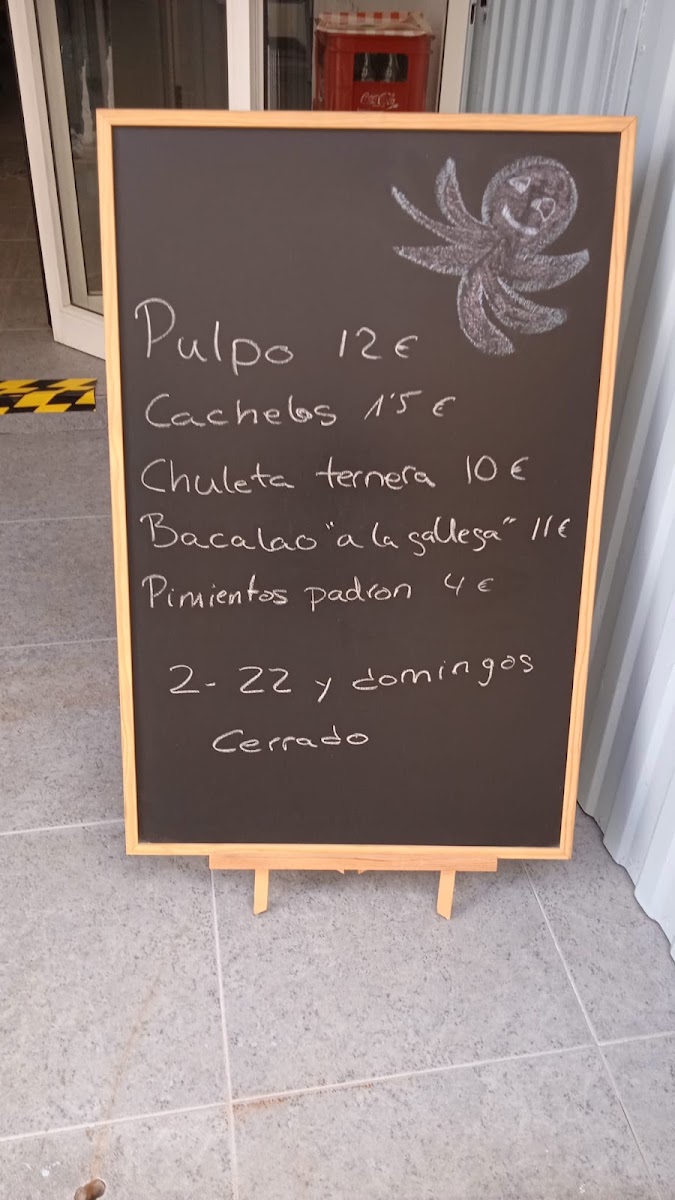 Coca-Cola
Pulpo 12€
Cachelos 1'5 €
Chuleta ternera 10 €
Bacalao "a la gallega" 11€
Pimientos padron 4 €
2-22 y domingos
Cerrado